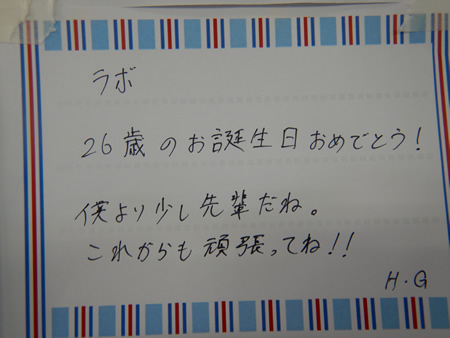 ラボ
26歳のお誕生日おめでとう！
僕より少し先輩だね。
これからも頑張ってね！！
H・G